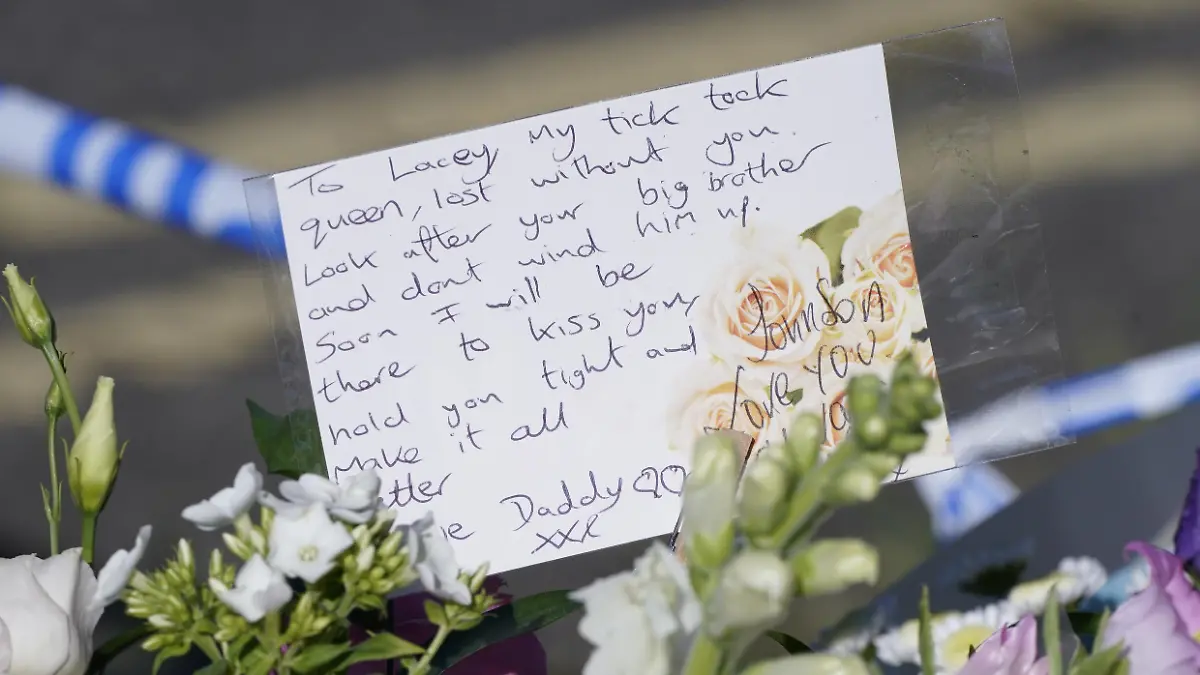 To Lacey My tick tock
queen, lost without you.
Look after your big brother
and dont wind him up.
Soon I will be
there to kiss you,
hold you tight and
Make it all
Daddy
xxx
Johnson
love you